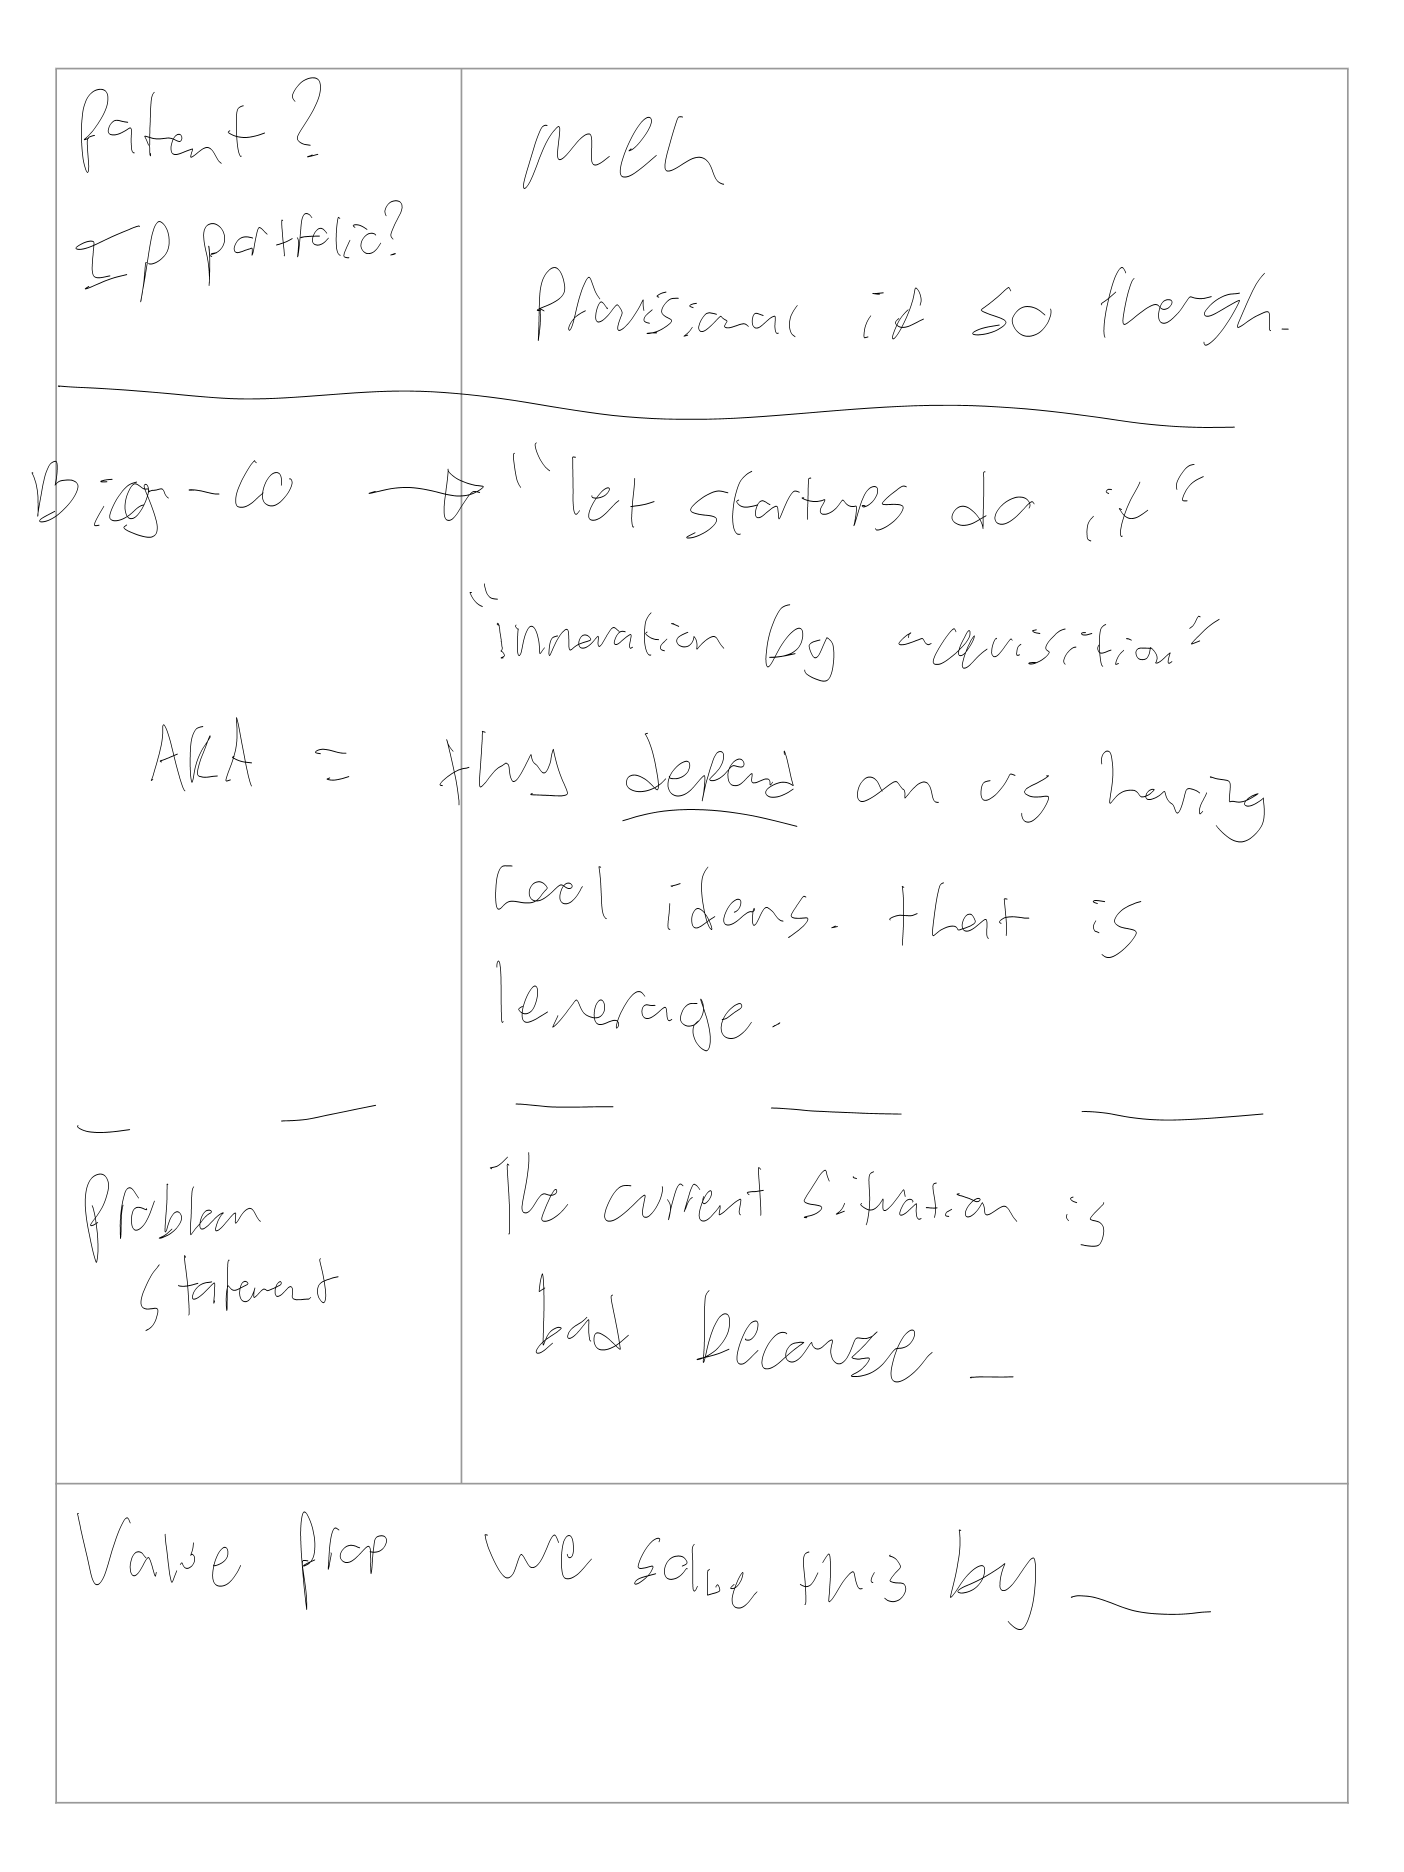 Patent?
meh
IP portfolio?
Provisional if so though.
Big-co → "let startups do it"
"innovation by acquisition"
AKA = they depend on us having
cool ideas. that is
leverage.
Problem
statement
The current situation is
bad because _
Value prop we solve this by ___